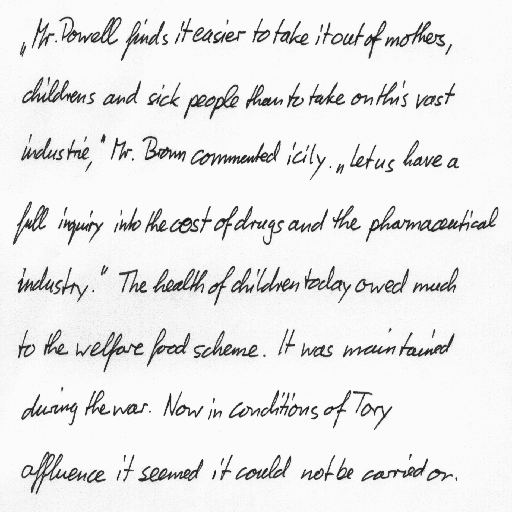 „Mr. Powell finds it easier to take it out of mothers,
childrens and sick people than to take on this vast
industrie,“ Mr. Brown commented icily. „Let us have a
full inquiry into the cost of drugs and the pharmaceutical
industry.“ The health of children today owed much
to the welfare food scheme. It was maintained
during the war. Now in conditions of Tory
affluence it seemed it could not be carried on.